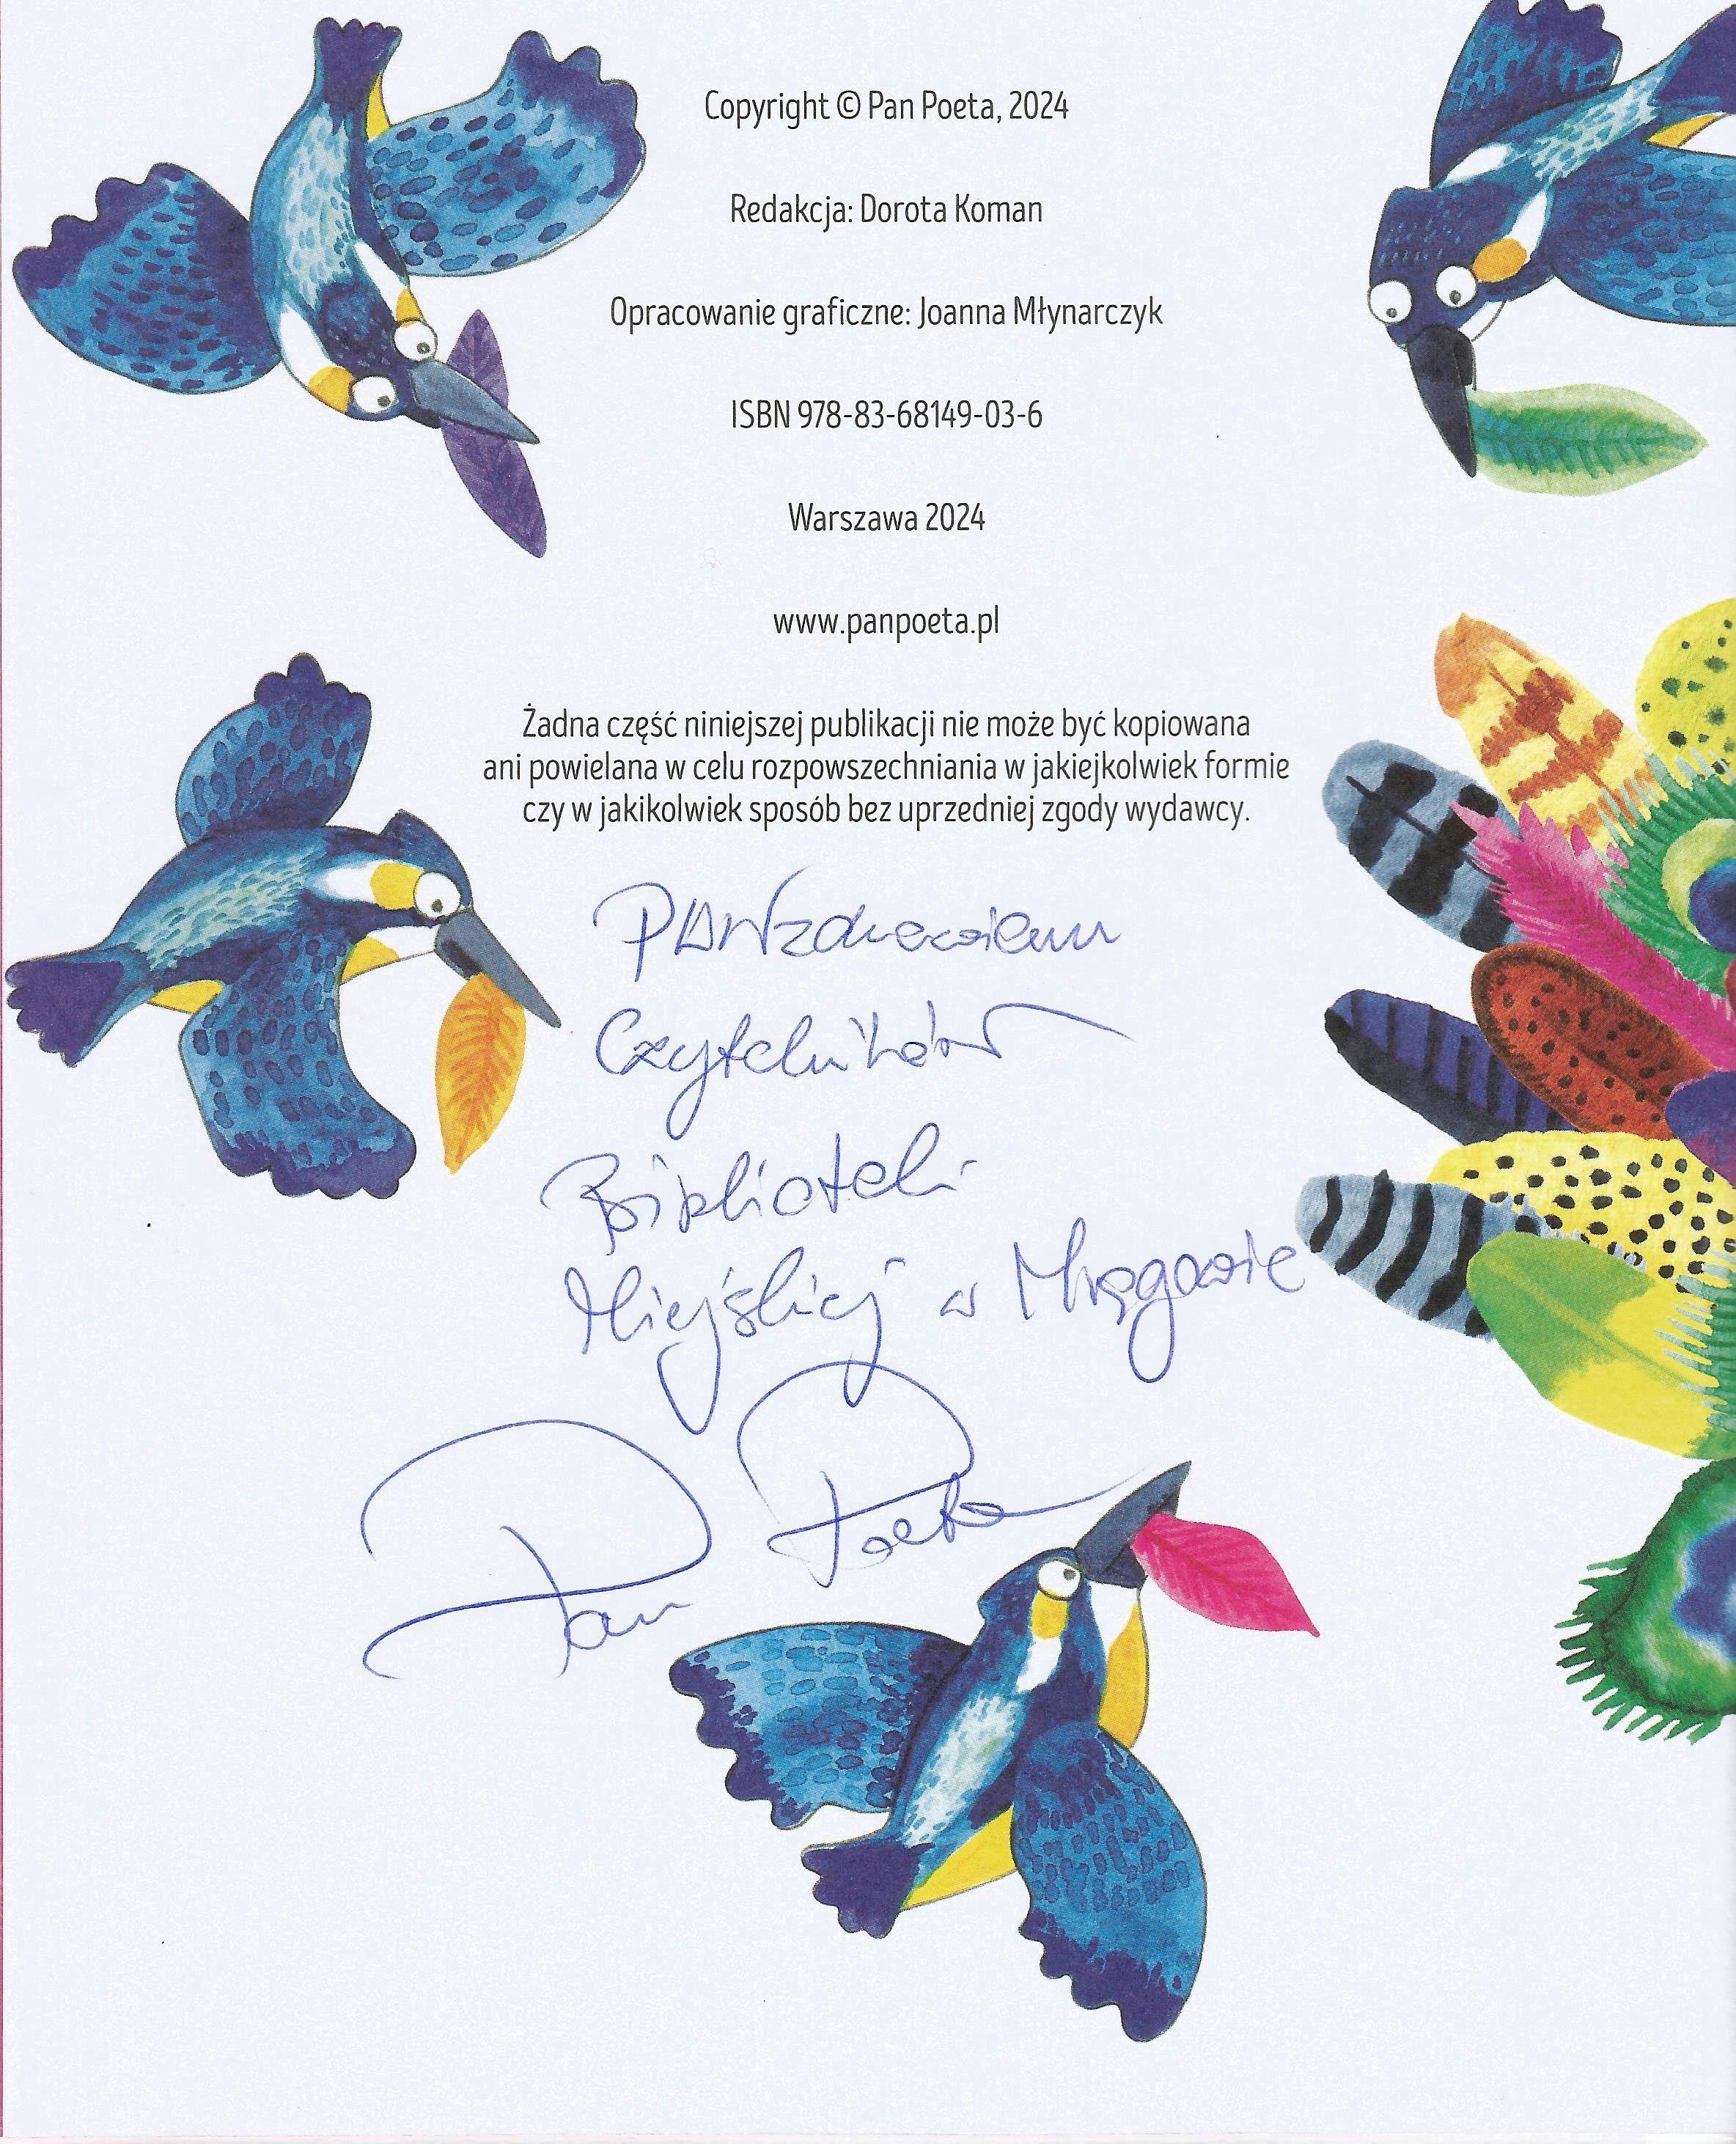 Copyright © Pan Poeta, 2024
Redakcja: Dorota Koman
Opracowanie graficzne: Joanna Młynarczyk
ISBN 978-83-68149-03-6
Warszawa 2024
www.panpoeta.pl
Żadna część niniejszej publikacji nie może być kopiowana
ani powielana w celu rozpowszechniania w jakiejkolwiek formie
czy w jakikolwiek sposób bez uprzedniej zgody wydawcy.
Czytelników
Biblioteki
Miejskiej w Mrągowie
Pan Poeta